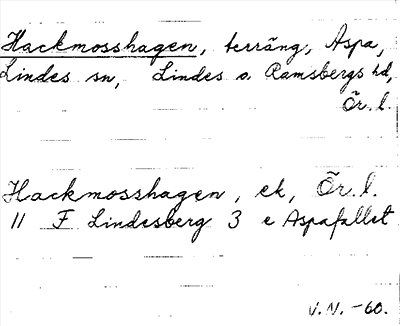 Hackmosshagen, terräng, Aspa,
Lindes sn, Lindes o Ramsbergs hd,
Ör. l.
Hackmosshagen, ek, Ör. l.
11 F Lindesberg 3 e Aspafallet
V.N. -60.